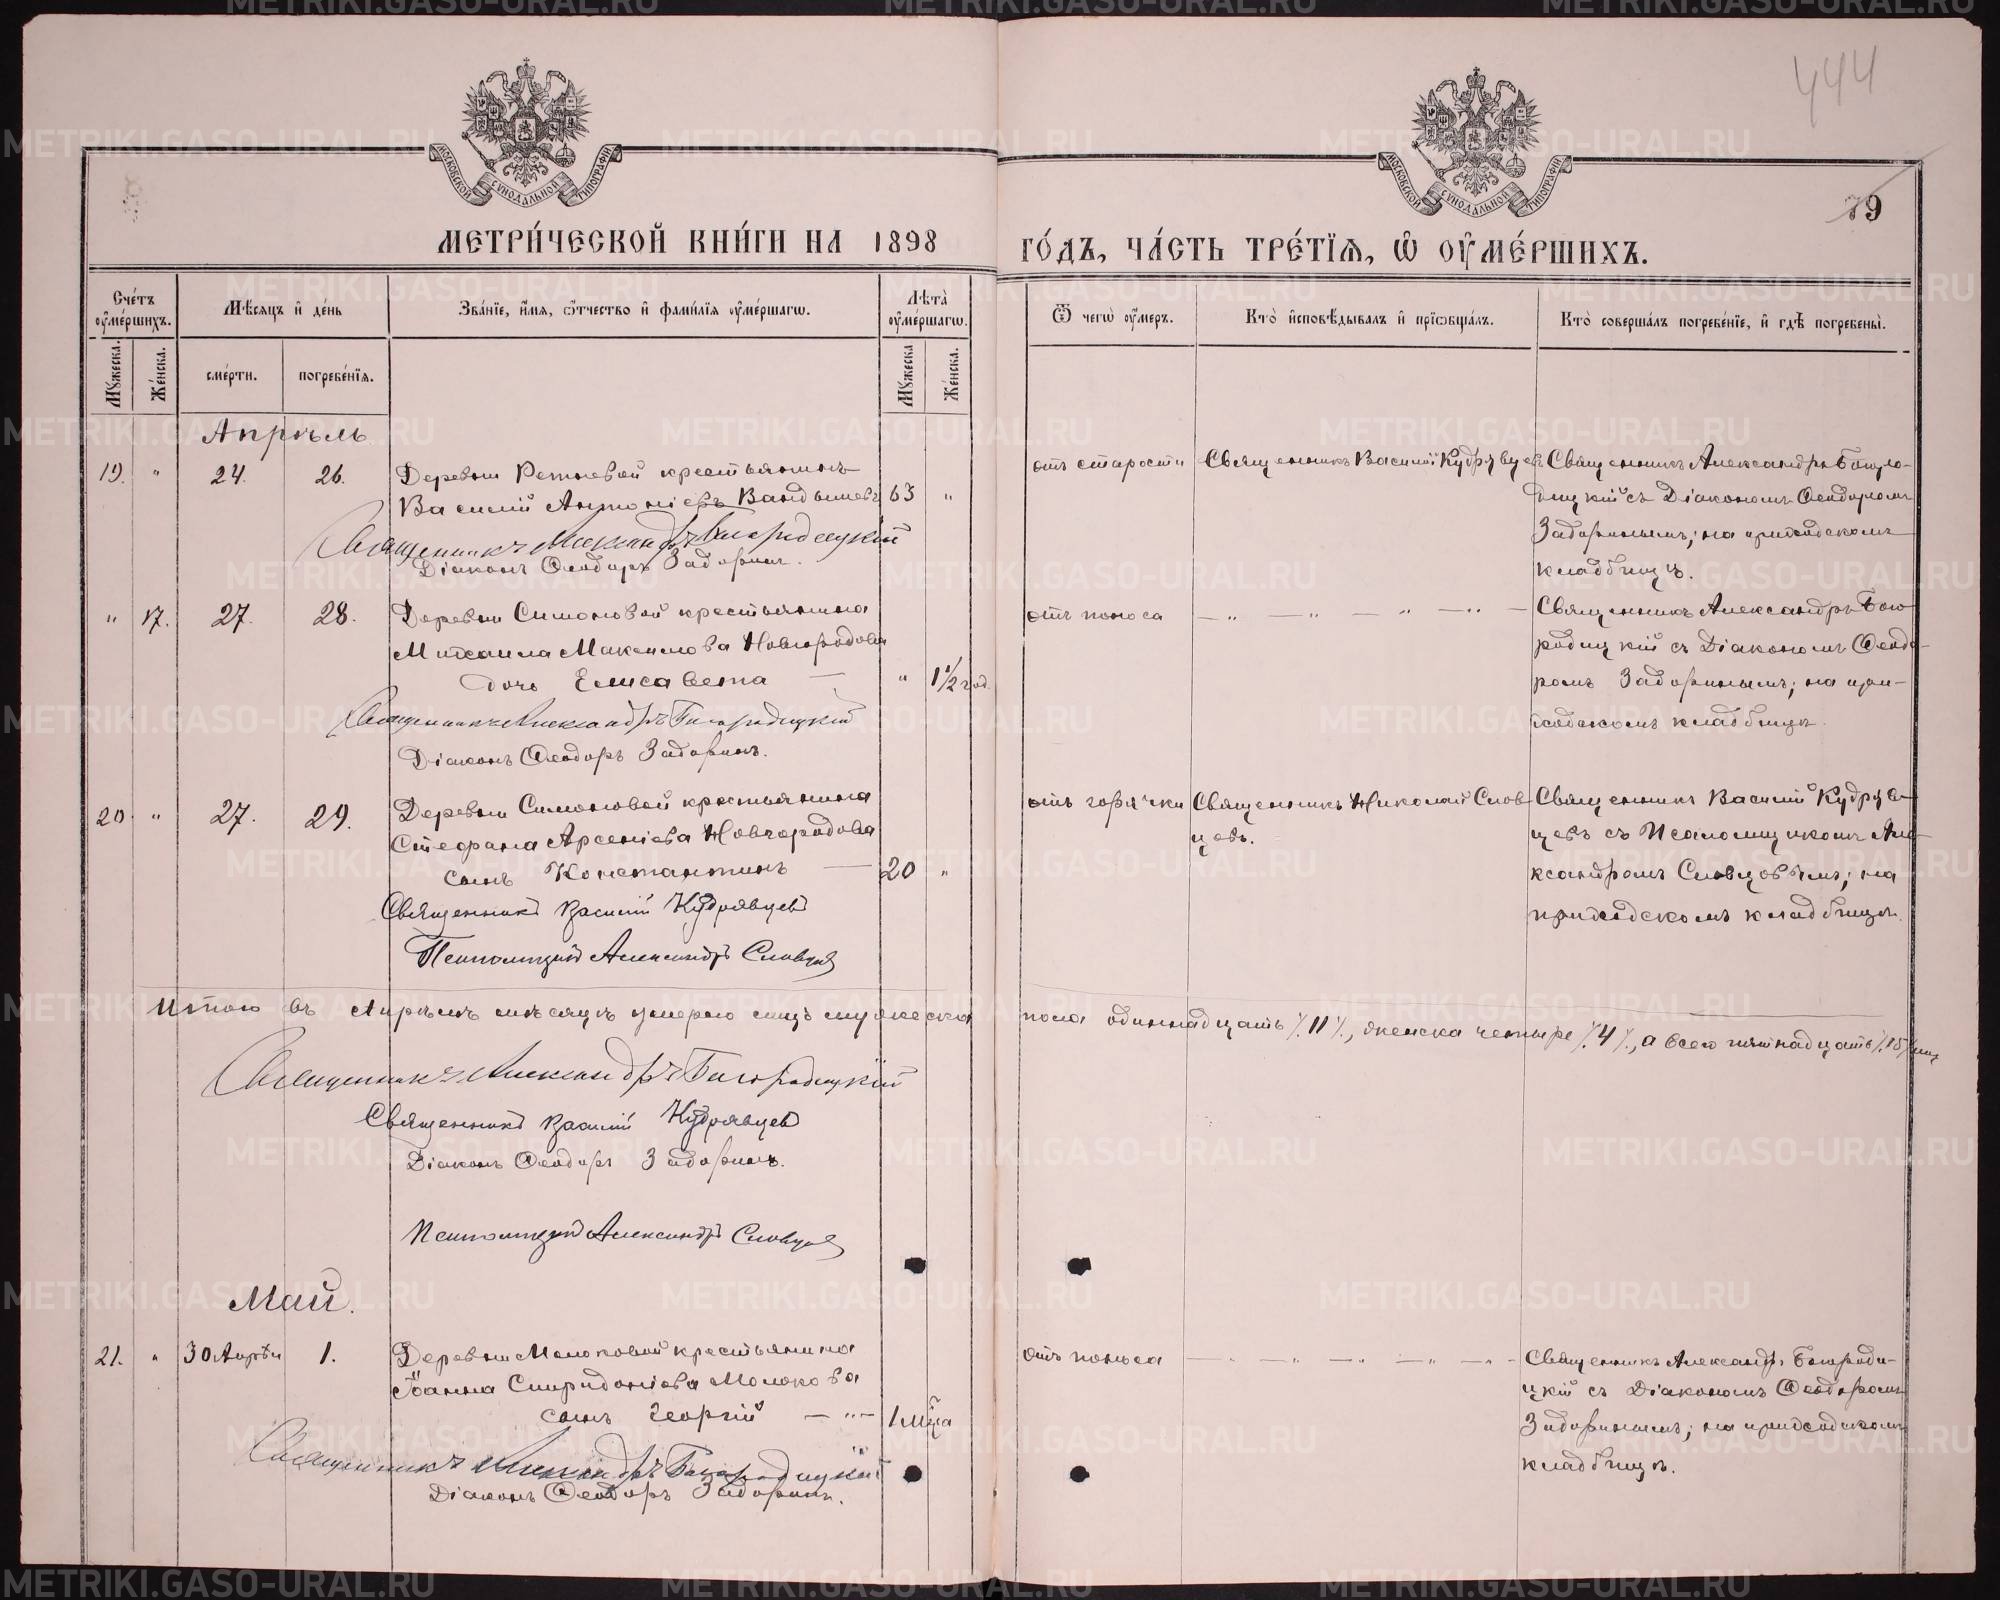 444
МОСКОВСКОЙ СѴНОДАЛЬНОЙ ТИПОГРАФІИ
МОСКОВСКОЙ СѴНОДАЛЬНОЙ ТИПОГРАФІИ
79
МЕТРИ́ЧЕСКОЙ КНИ́ГИ НА 1898
ГО́ДЪ, ЧА́СТЬ ТРЕ́ТЇѦ, Ѡ҆ ОУ҆МЕ́РШИХЪ.
Сче́тъ оу҆ме́ршихъ.
Мѣ́сѧцъ и҆ де́нь
Зва́нїе, и҆́мѧ, ѻ҆́тчество и҆ фами́лїѧ оу҆ме́ршагѡ.
Лѣ̑та оу҆ме́ршагѡ.
Ѿ чегѡ̀ оу҆́меръ.
Кто̀ и҆сповѣ́дывалъ и҆ прїѡбща́лъ.
Кто̀ соверша́лъ погребе́нїе, и҆ гдѣ̀ погребены̀.
Мꙋ́жеска.
Же́нска.
сме́рти.
погребе́нїѧ.
Мꙋ́жеска
Же́нска.
Апрѣль
19. " 24. 26. Деревни Ретневой крестьянинъ
Василій Антоніевъ Вандышевъ 63 "
Священникъ Александръ Богородицкій
Діаконъ Ѳеодоръ Задоринъ.
отъ старости
Священникъ Василій Кудрявцевъ
Священникъ Александръ Богоро-
дицкій съ Діакономъ Ѳеодоромъ
Задоринымъ; на приходскомъ
кладбищѣ.
" 17. 27. 28. Деревни Симоновой крестьянина
Михаила Максимова Новгородова
дочь Елисавета — " 1 1/2 год.
Священникъ Александръ Богородицкій
Діаконъ Ѳеодоръ Задоринъ.
отъ поноса
— " — " — " — " —
Священникъ Александръ Бого-
родицкій съ Діакономъ Ѳеодо-
ромъ Задоринымъ; на при-
ходскомъ кладбищѣ.
20. " 27. 29. Деревни Симоновой крестьянина
Стефана Арсеніева Новгородова
сынъ Константинъ — 20 "
Священникъ Василій Кудрявцевъ
Псаломщикъ Александръ Словцовъ
отъ горячки
Священникъ Николай Слов-
цовъ.
Священникъ Василій Кудряв-
цевъ съ Псаломщикомъ Але-
ксандромъ Словцовымъ; на
приходскомъ кладбищѣ.
Итого въ Апрѣлѣ мѣсяцѣ умерло лицъ мужеска пола одиннадцать /.11/., женска четыре /.4/., а всего пятнадцать /.15/. лицъ
Священникъ Александръ Богородицкій
Священникъ Василій Кудрявцевъ
Діаконъ Ѳеодоръ Задоринъ.
Псаломщикъ Александръ Словцовъ
Май.
21. " 30 Апрѣл 1. Деревни Молоковой крестьянина
Іоанна Спиридоніева Молокова
сынъ Георгій — " — 1 мѣсца
Священникъ Александръ Богородицкій
Діаконъ Ѳеодоръ Задоринъ.
отъ поноса
— " — " — " — " — " —
Священникъ Александръ Богороди-
цкій съ Діакономъ Ѳеодоромъ
Задоринымъ; на приходскомъ
кладбищѣ.
METRIKI.GASO-URAL.RU